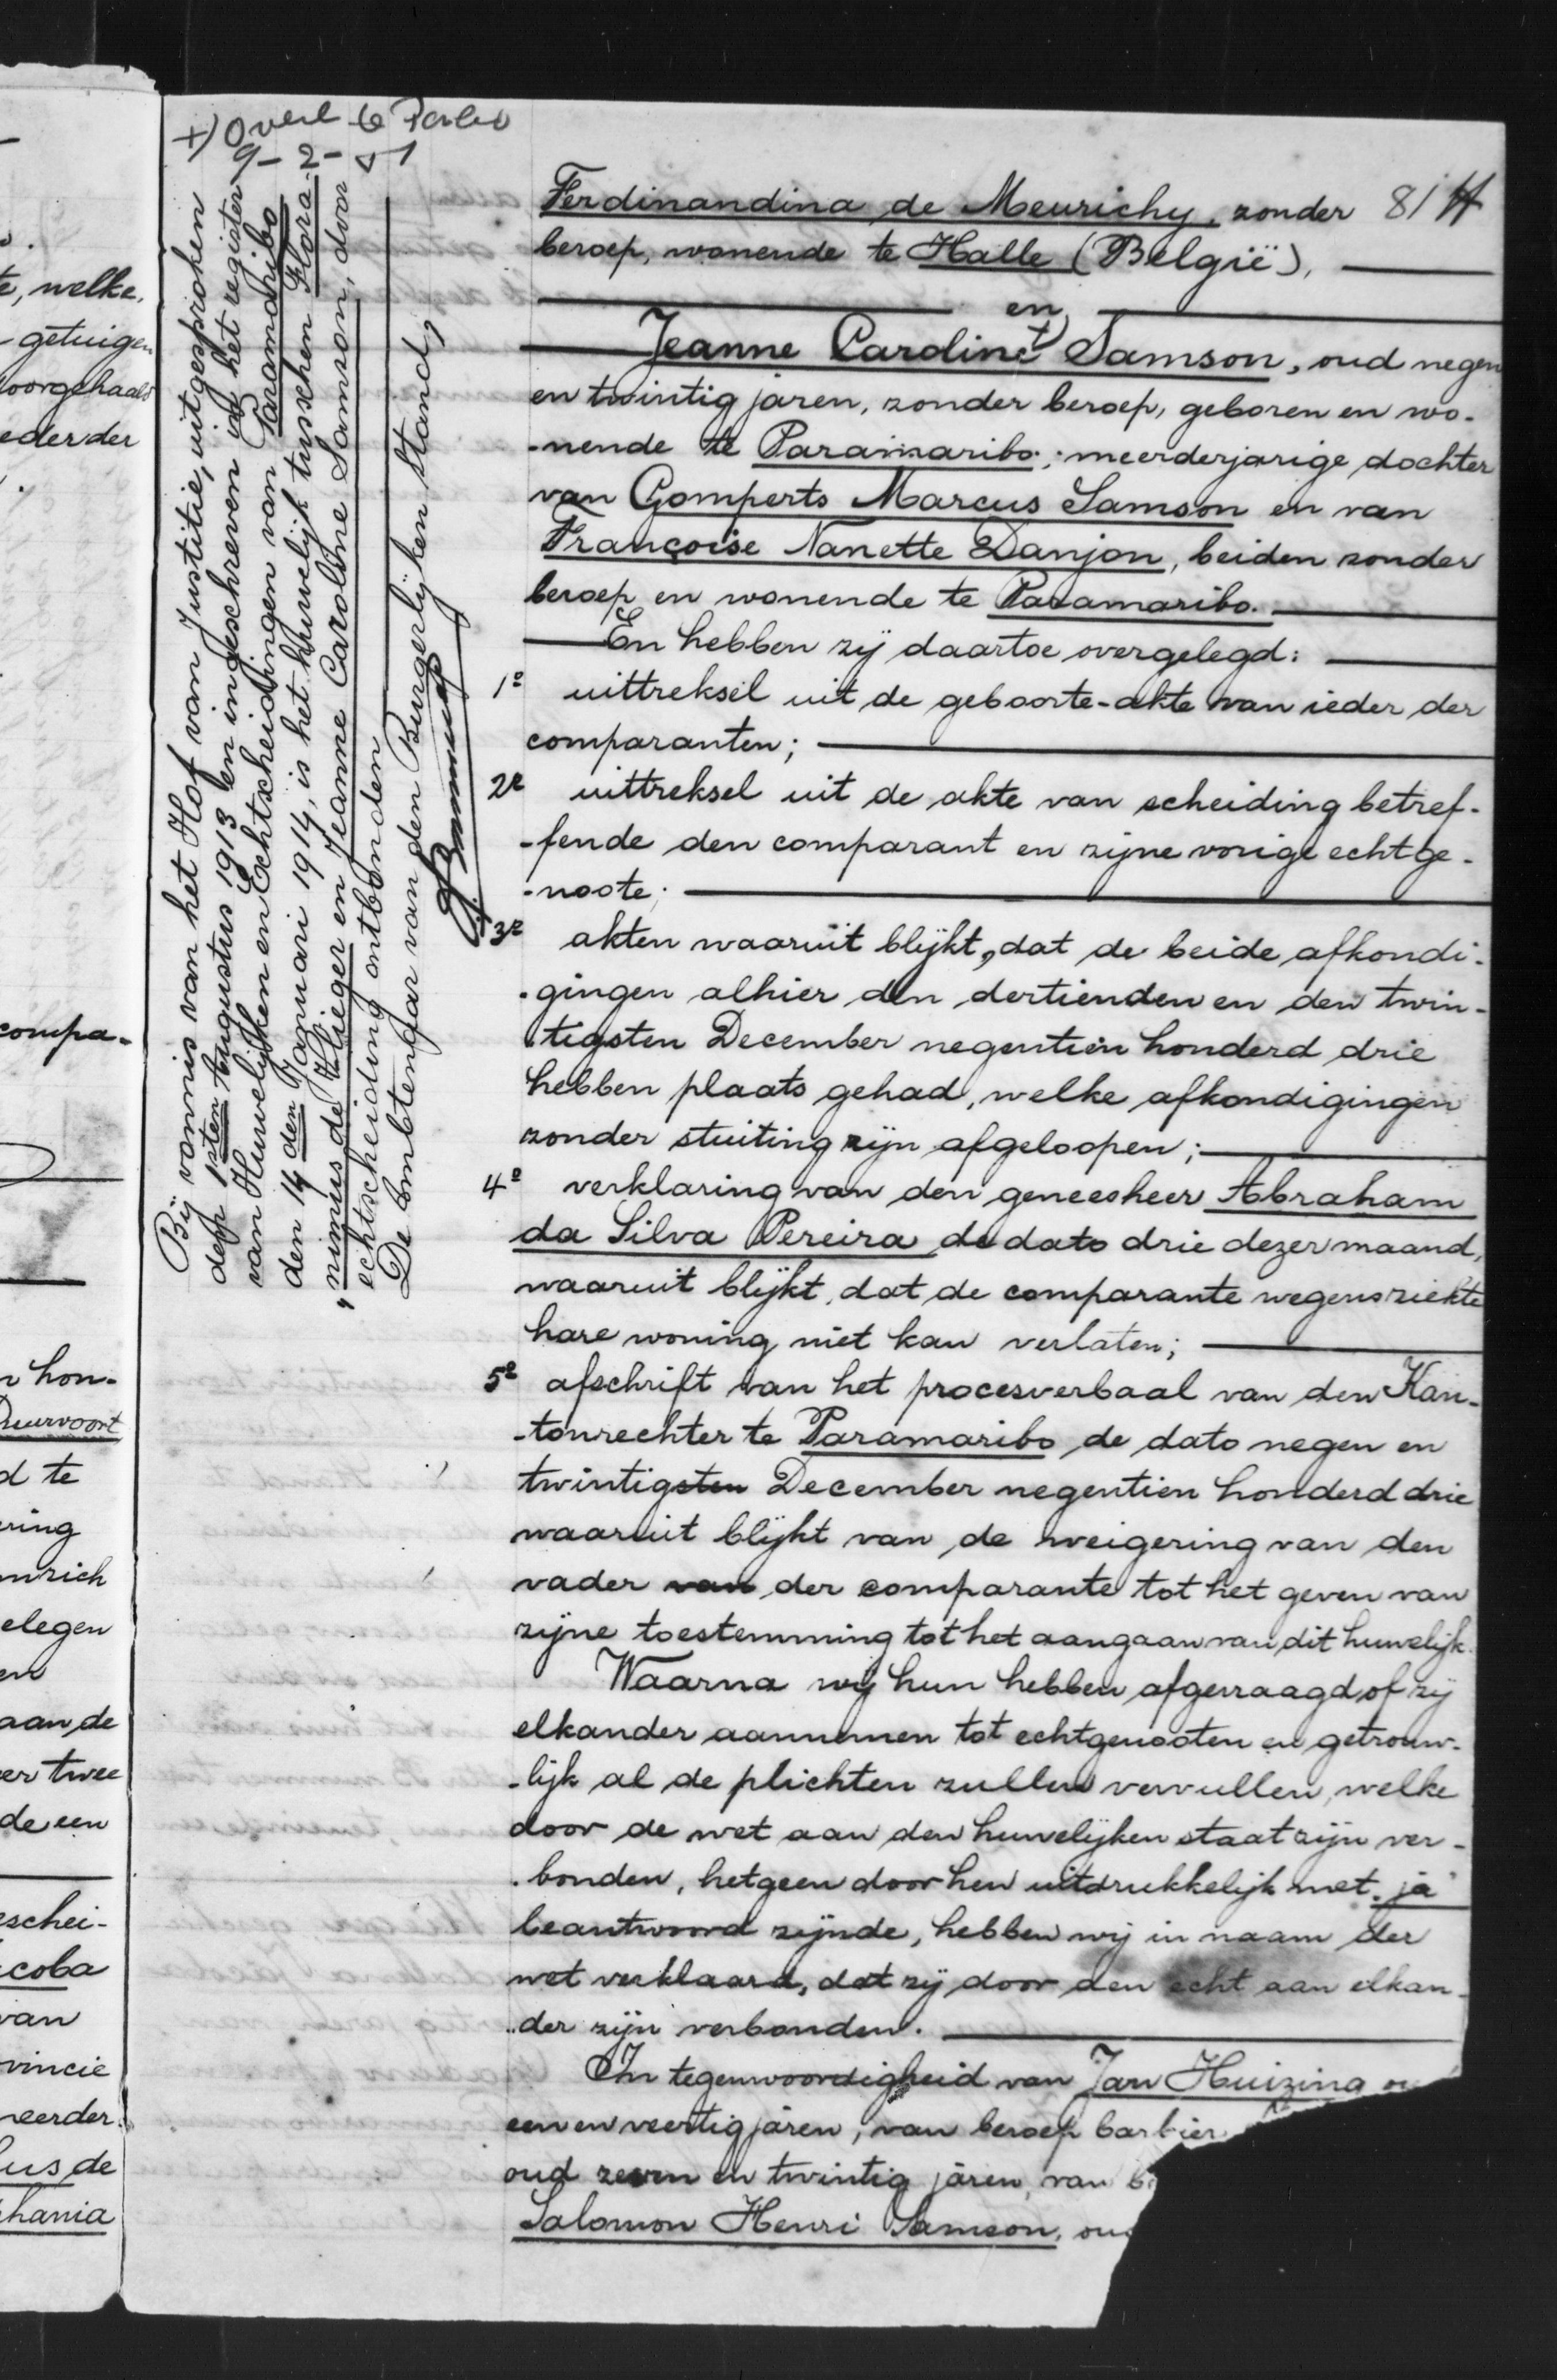 +) Overl te Parbo
9-2-51
Bij vonnis van het Hof van Justitie, uitgesproken
den 1sten Augustus 1913 en ingeschreven in het register
van Huwelijken en Echtscheidingen van Paramaribo
den 14 den Januari 1914, is het huwelijk tusschen Flora-
„nimus de Vlieger en Jeanne Caroline Samson, door
echtscheiding ontbonden
De Ambtenaar van den Burgerlijken Stand,
.
te, welke,
getuigen
oorgehaald
eder der
compa-
n hon-
Duurvoort
d te
ering
nrich
elegen
en
aan de
er twee
de een
eschei-
coba
van
vincie
eerder
us de
hania
Ferdinandina de Meurichy, zonder 81
beroep, wonende te Halle (België),
en
Jeanne Caroline +) Samson, oud negen
en twintig jaren, zonder beroep, geboren en wo-
-nende te Paramaribo; meerderjarige dochter
van Gomperts Marcus Samson en van
Françoise Nanette Danjon, beiden zonder
beroep en wonende te Paramaribo.
En hebben zij daartoe overgelegd:
1º uittreksel uit de geboorte-akte van ieder der
comparanten;
2º uittreksel uit de akte van scheiding betref-
-fende den comparant en zijne vorige echtge-
-noote;
3º akten waaruit blijkt, dat de beide afkondi-
-gingen alhier den dertienden en den twin-
tigsten December negentien honderd drie
hebben plaats gehad, welke afkondigingen
zonder stuiting zijn afgeloopen;
4º verklaring van den geneesheer Abraham
da Silva Pereira de dato drie dezer maand,
waaruit blijkt, dat de comparante wegens ziekte
hare woning niet kan verlaten;
5º afschrift van het procesverbaal van den Kan-
-tonrechter te Paramaribo de dato negen en
twintigsten December negentien honderd drie
waaruit blijkt van de weigering van den
vader van der comparante tot het geven van
zijne toestemming tot het aangaan van dit huwelijk.
Waarna wij hun hebben afgevraagd, of zij
elkander aannemen tot echtgenooten en getrouw-
-lijk al de plichten zullen vervullen, welke
door de wet aan den huwelijken staat zijn ver-
-bonden, hetgeen door hen uitdrukkelijk met „ja"
beantwoord zijnde, hebben wij in naam der
wet verklaard, dat zij door den echt aan elkan-
-der zijn verbonden.
In tegenwoordigheid van Jan Huizing ou
een en veertig jaren, van beroep barbier
oud zeven en twintig jaren, van b
Salomon Henri Samson, oud